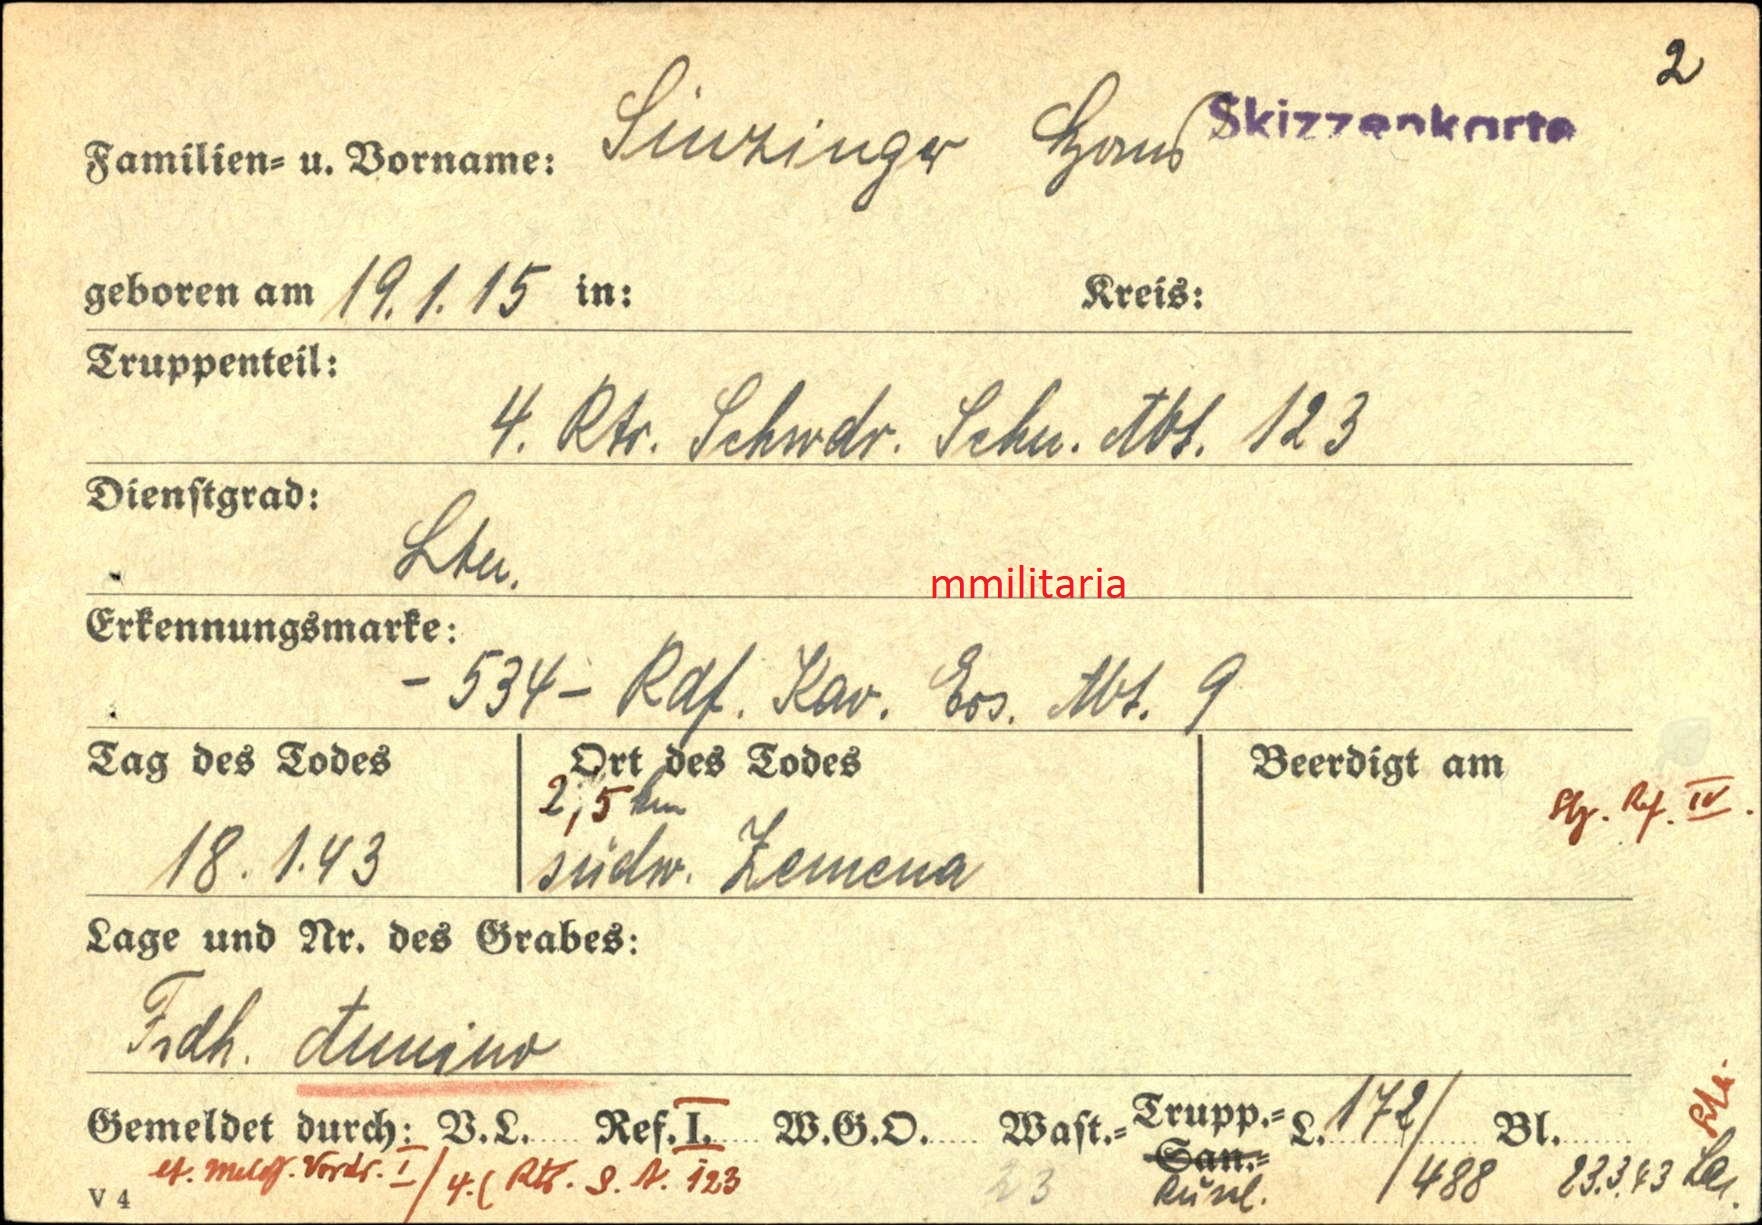 2
Familien- u. Vorname: Sinzinger Hans Skizzenkarte
geboren am 19.1.15 in: Kreis:
Truppenteil:
4. Rtr. Schwdr. Schn. Abt. 123
Dienstgrad:
Ltn.
mmilitaria
Erkennungsmarke:
- 534 - Rdf. Kav. Ers. Abt. 9
Tag des Todes Ort des Todes Beerdigt am
2,5 km
Ref. IV.
18.1.43 südw. Zemena
Lage und Nr. des Grabes:
Frdh.
Gemeldet durch: V.L. Ref. I. W.G.O. Wast.= Trupp.= L. 172/ Bl.
San.=
Vordr. I / 4. ( Rtr. S. A. 123
23 /488 23.3.43
V 4